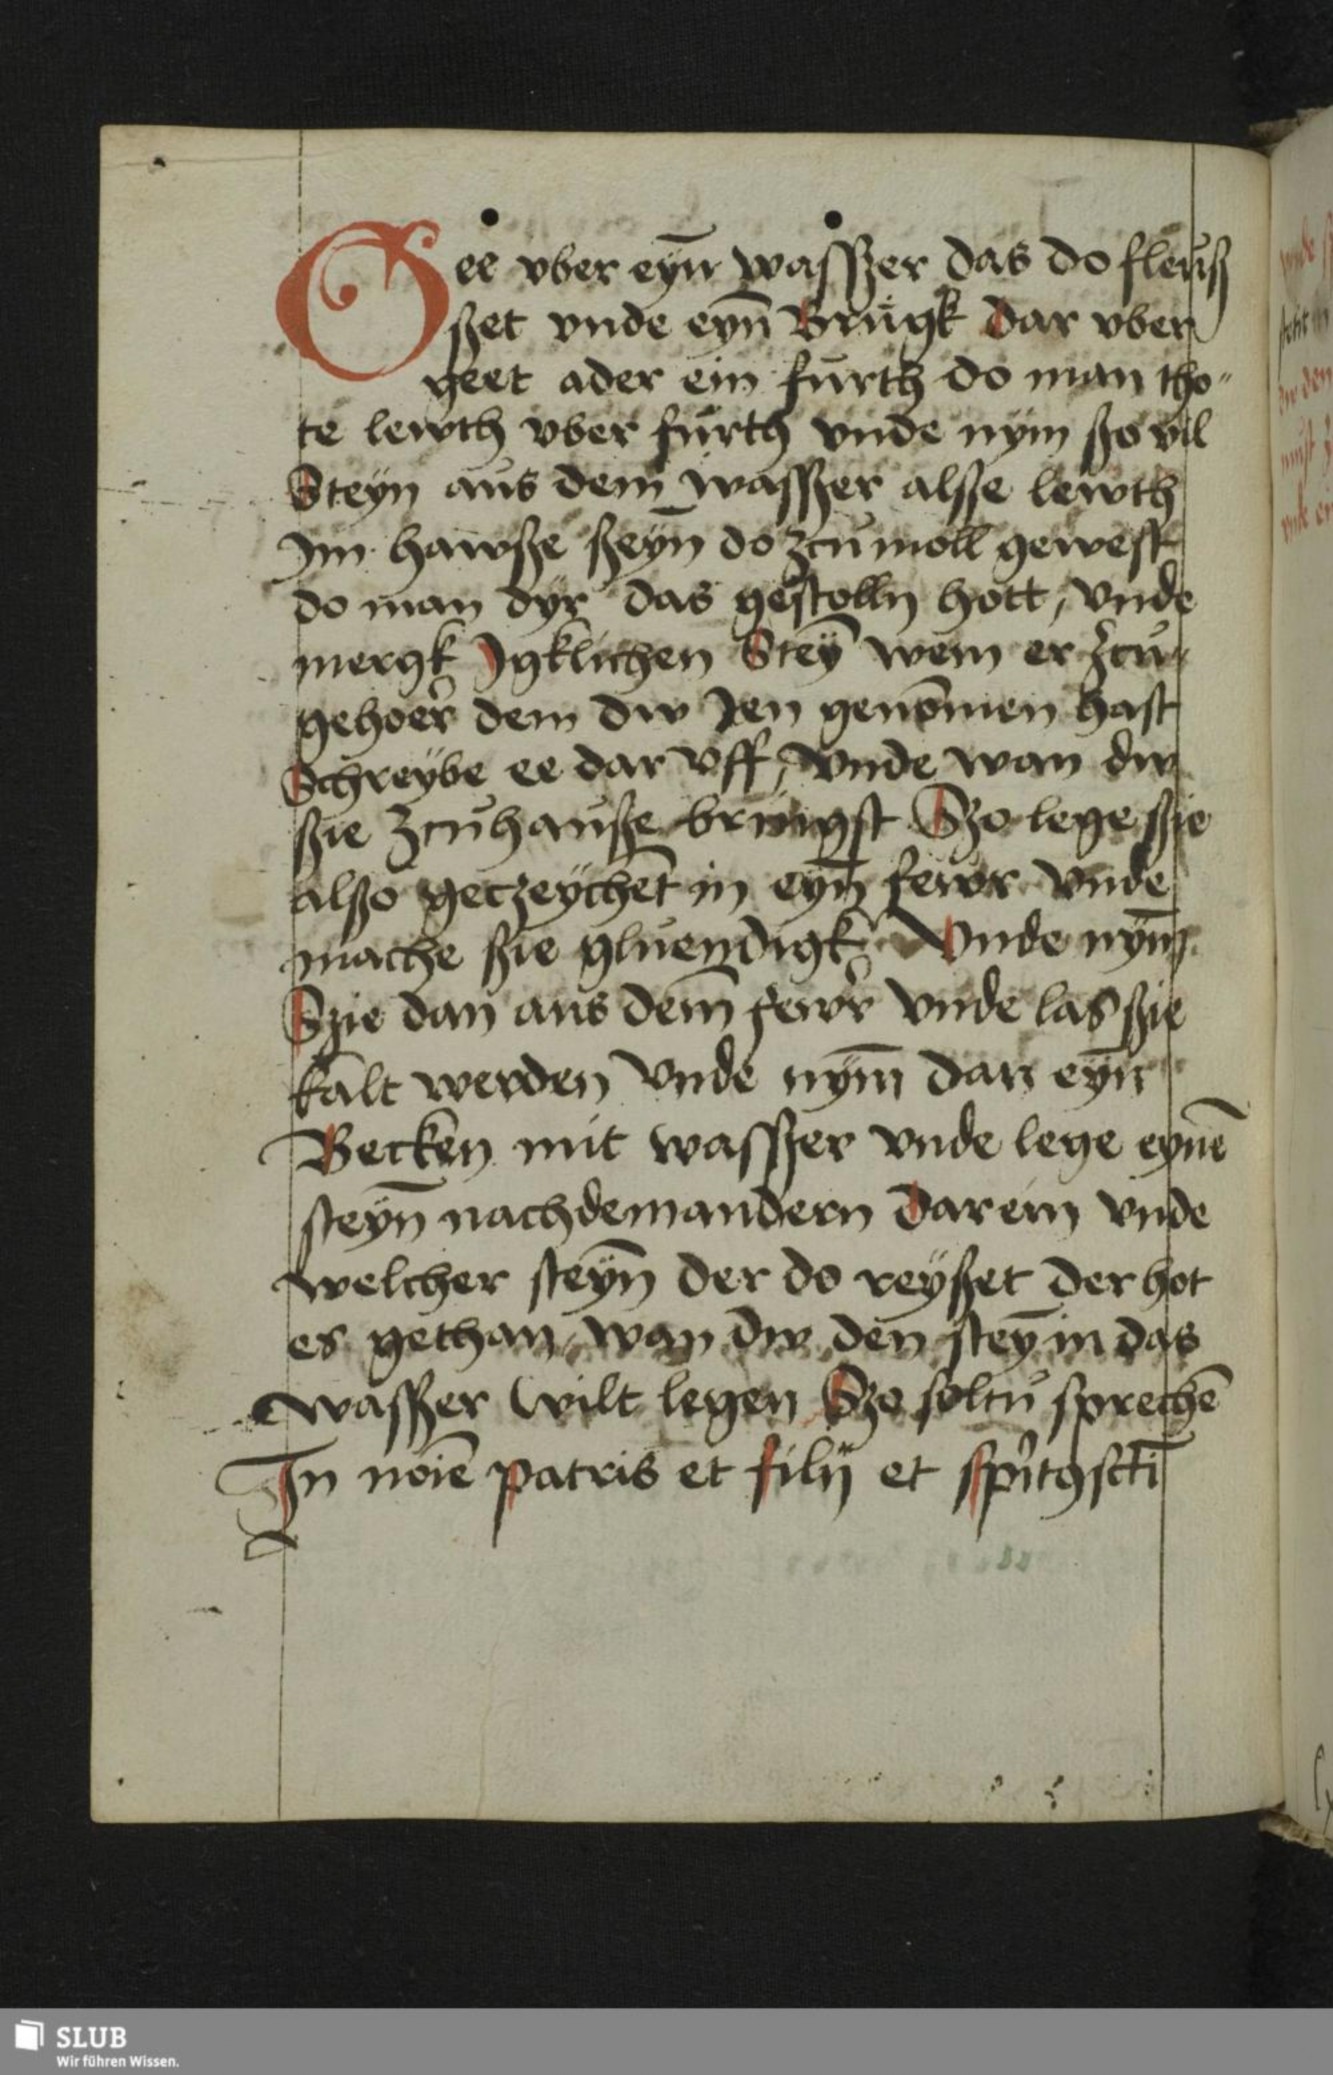 Gee vber eyn̄ wasſzer das do fleusß
ßet vnde eyn̄ Brugk dar vber
geet ader ein furth do man tho⸗
te lewth vber furth vnde nym ßo vil
Steyn aus dem wasſzer alße lewth
Im hawße ßeyn̄ do zcumoll gewest
do man dyr das gestolln hott, vnde
mergk Igklichen Steȳ wem er zcu⸗
gehoer dem dw Jen genōmen hast
Schreybe ee dar vff, vnde wan dw
ßie zcuhauße bringst Szo lege ßie
alßo geczeychent in eyn̄ fewr vnde
mache ßie gluendigk Vnde nym̄
Szie dan aus dem̄ fewr vnde las ßie
kalt werden vnde nym̄ dan eyn̄
Becken mit wasſzer vnde lege eynē
steyn̄ nachdemandern darein vnde
welcher steyn̄ der do reyßet der hot
es gethan, wan dw den steȳ in das
wasſzer wilt legen Szo soltu sprechē
In noīe patris et filij et spirit9 scti
SLUB
Wir führen Wissen.